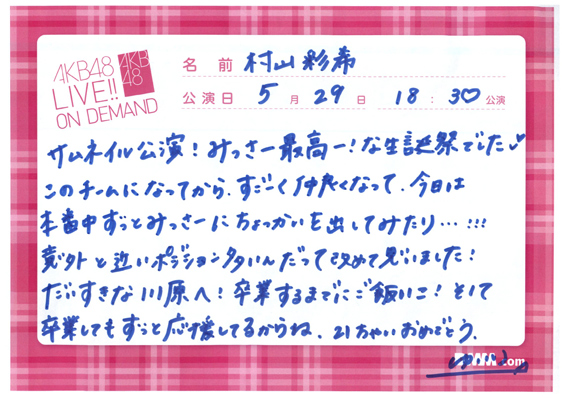 AKB48
LIVE!!
ON DEMAND
AKB
48
名 前 村山彩希
公演日 5 月 29 日 18 : 30♡ 公演
サムネイル公演!みっさー最高ー!な生誕祭でした♡
このチームになってから、すごーく仲良くなって、今日は
本番中ずっとみっさーにちょっかいを出してみたり…!!!
意外と近いポジション多いんだって改めて思いました!
だいすきな川原へ!卒業するまでにご飯いこ!そして
卒業してもずっと応援してるからね、21ちゃいおめでとう。
.com